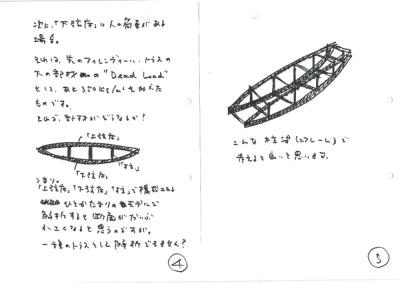 次に、「下弦材」に人の荷重がある
場合。
それは、先のフィレンディール、トラスの
下の部材の"Dead Load"
として、あと350kg/㎡を加えた
ものです。
それで、部材がどうなるか?
「上弦材」
「束」
「下弦材」
つまり、
「上弦材」「下弦材」「束」で構成される
ひとかたまりのモデルで
解析すると断面がだいぶ
小さくなると思うのですが。
一種のトラスとして解析できません?
④
こんな構造(フレーム)で
考えると良いと思います。
⑤